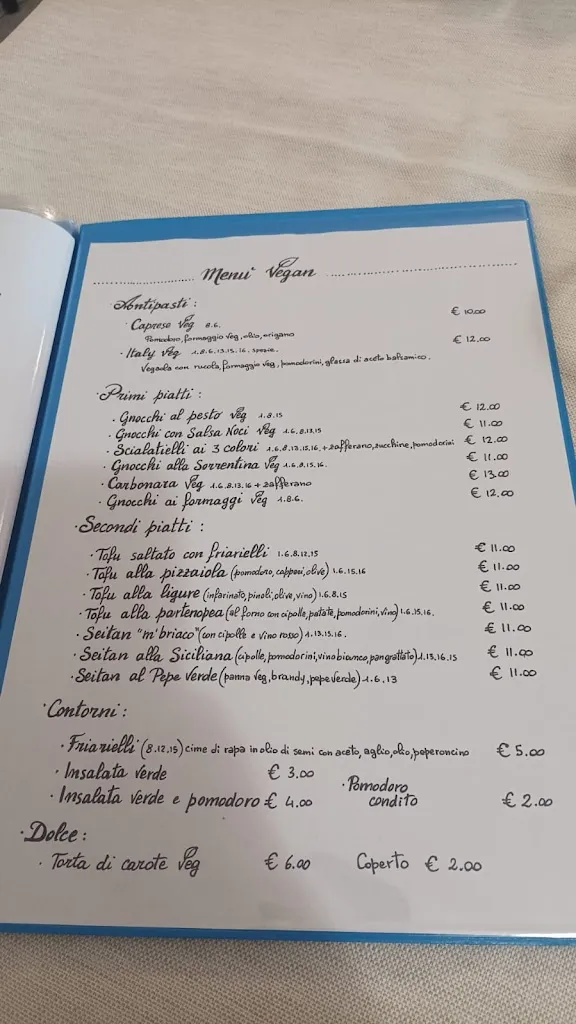 Menu' Vegan
· Antipasti :
· Caprese Veg 8.6. € 10.00
Pomodoro, formaggio veg, olio, origano
· Italy Veg 1.8.6.13.15.16. spezie. € 12.00
Vegaola con rucola, formaggio veg, pomodorini, glassa di aceto balsamico.
· Primi piatti :
· Gnocchi al pesto veg 1.8.15 € 12.00
· Gnocchi con Salsa Noci Veg 1.6.8.13.15 € 11.00
· Scialatielli ai 3 colori 1.6.8.13.15.16. + zafferano, zucchine, pomodorini € 12.00
· Gnocchi alla Sorrentina Veg 1.6.8.15.16. € 11.00
· Carbonara Veg 1.6.8.13.16 + zafferano € 13.00
· Gnocchi ai formaggi Veg 1.8.6. € 12.00
· Secondi piatti :
· Tofu saltato con friarielli 1.6.8.12.15 € 11.00
· Tofu alla pizzaiola (pomodoro, capperi, olive) 1.6.15.16 € 11.00
· Tofu alla ligure (infarinato, pinoli, olive, vino) 1.6.8.15 € 11.00
· Tofu alla partenopea (al forno con cipolle, patate, pomodorini, vino) 1.6.15.16. € 11.00
· Seitan "m'briaco" (con cipolle e vino rosso) 1.13.15.16. € 11.00
· Seitan alla Siciliana (cipolle, pomodorini, vino bianco, pangrattato) 1.13.16.15 € 11.00
· Seitan al Pepe Verde (panna veg, brandy, pepe verde) 1.6.13 € 11.00
· Contorni :
· Friarielli (8.12.15) cime di rapa in olio di semi con aceto, aglio, olio, peperoncino € 5.00
· Insalata verde € 3.00
· Insalata verde e pomodoro € 4.00
· Pomodoro condito € 2.00
· Dolce :
· Torta di carote Veg € 6.00 Coperto € 2.00